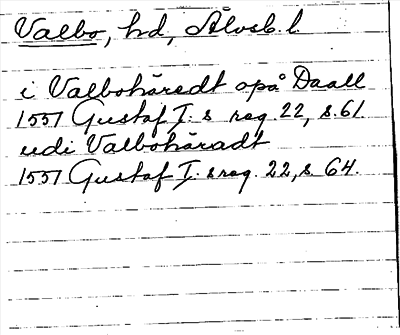 Valbo, hd, Älvsb. l.
i Valbohäredt opå Daall
1551 Gustaf I:s reg. 22, s. 61.
udi Valbohäradt
1551 Gustaf I:s reg. 22, s. 64.